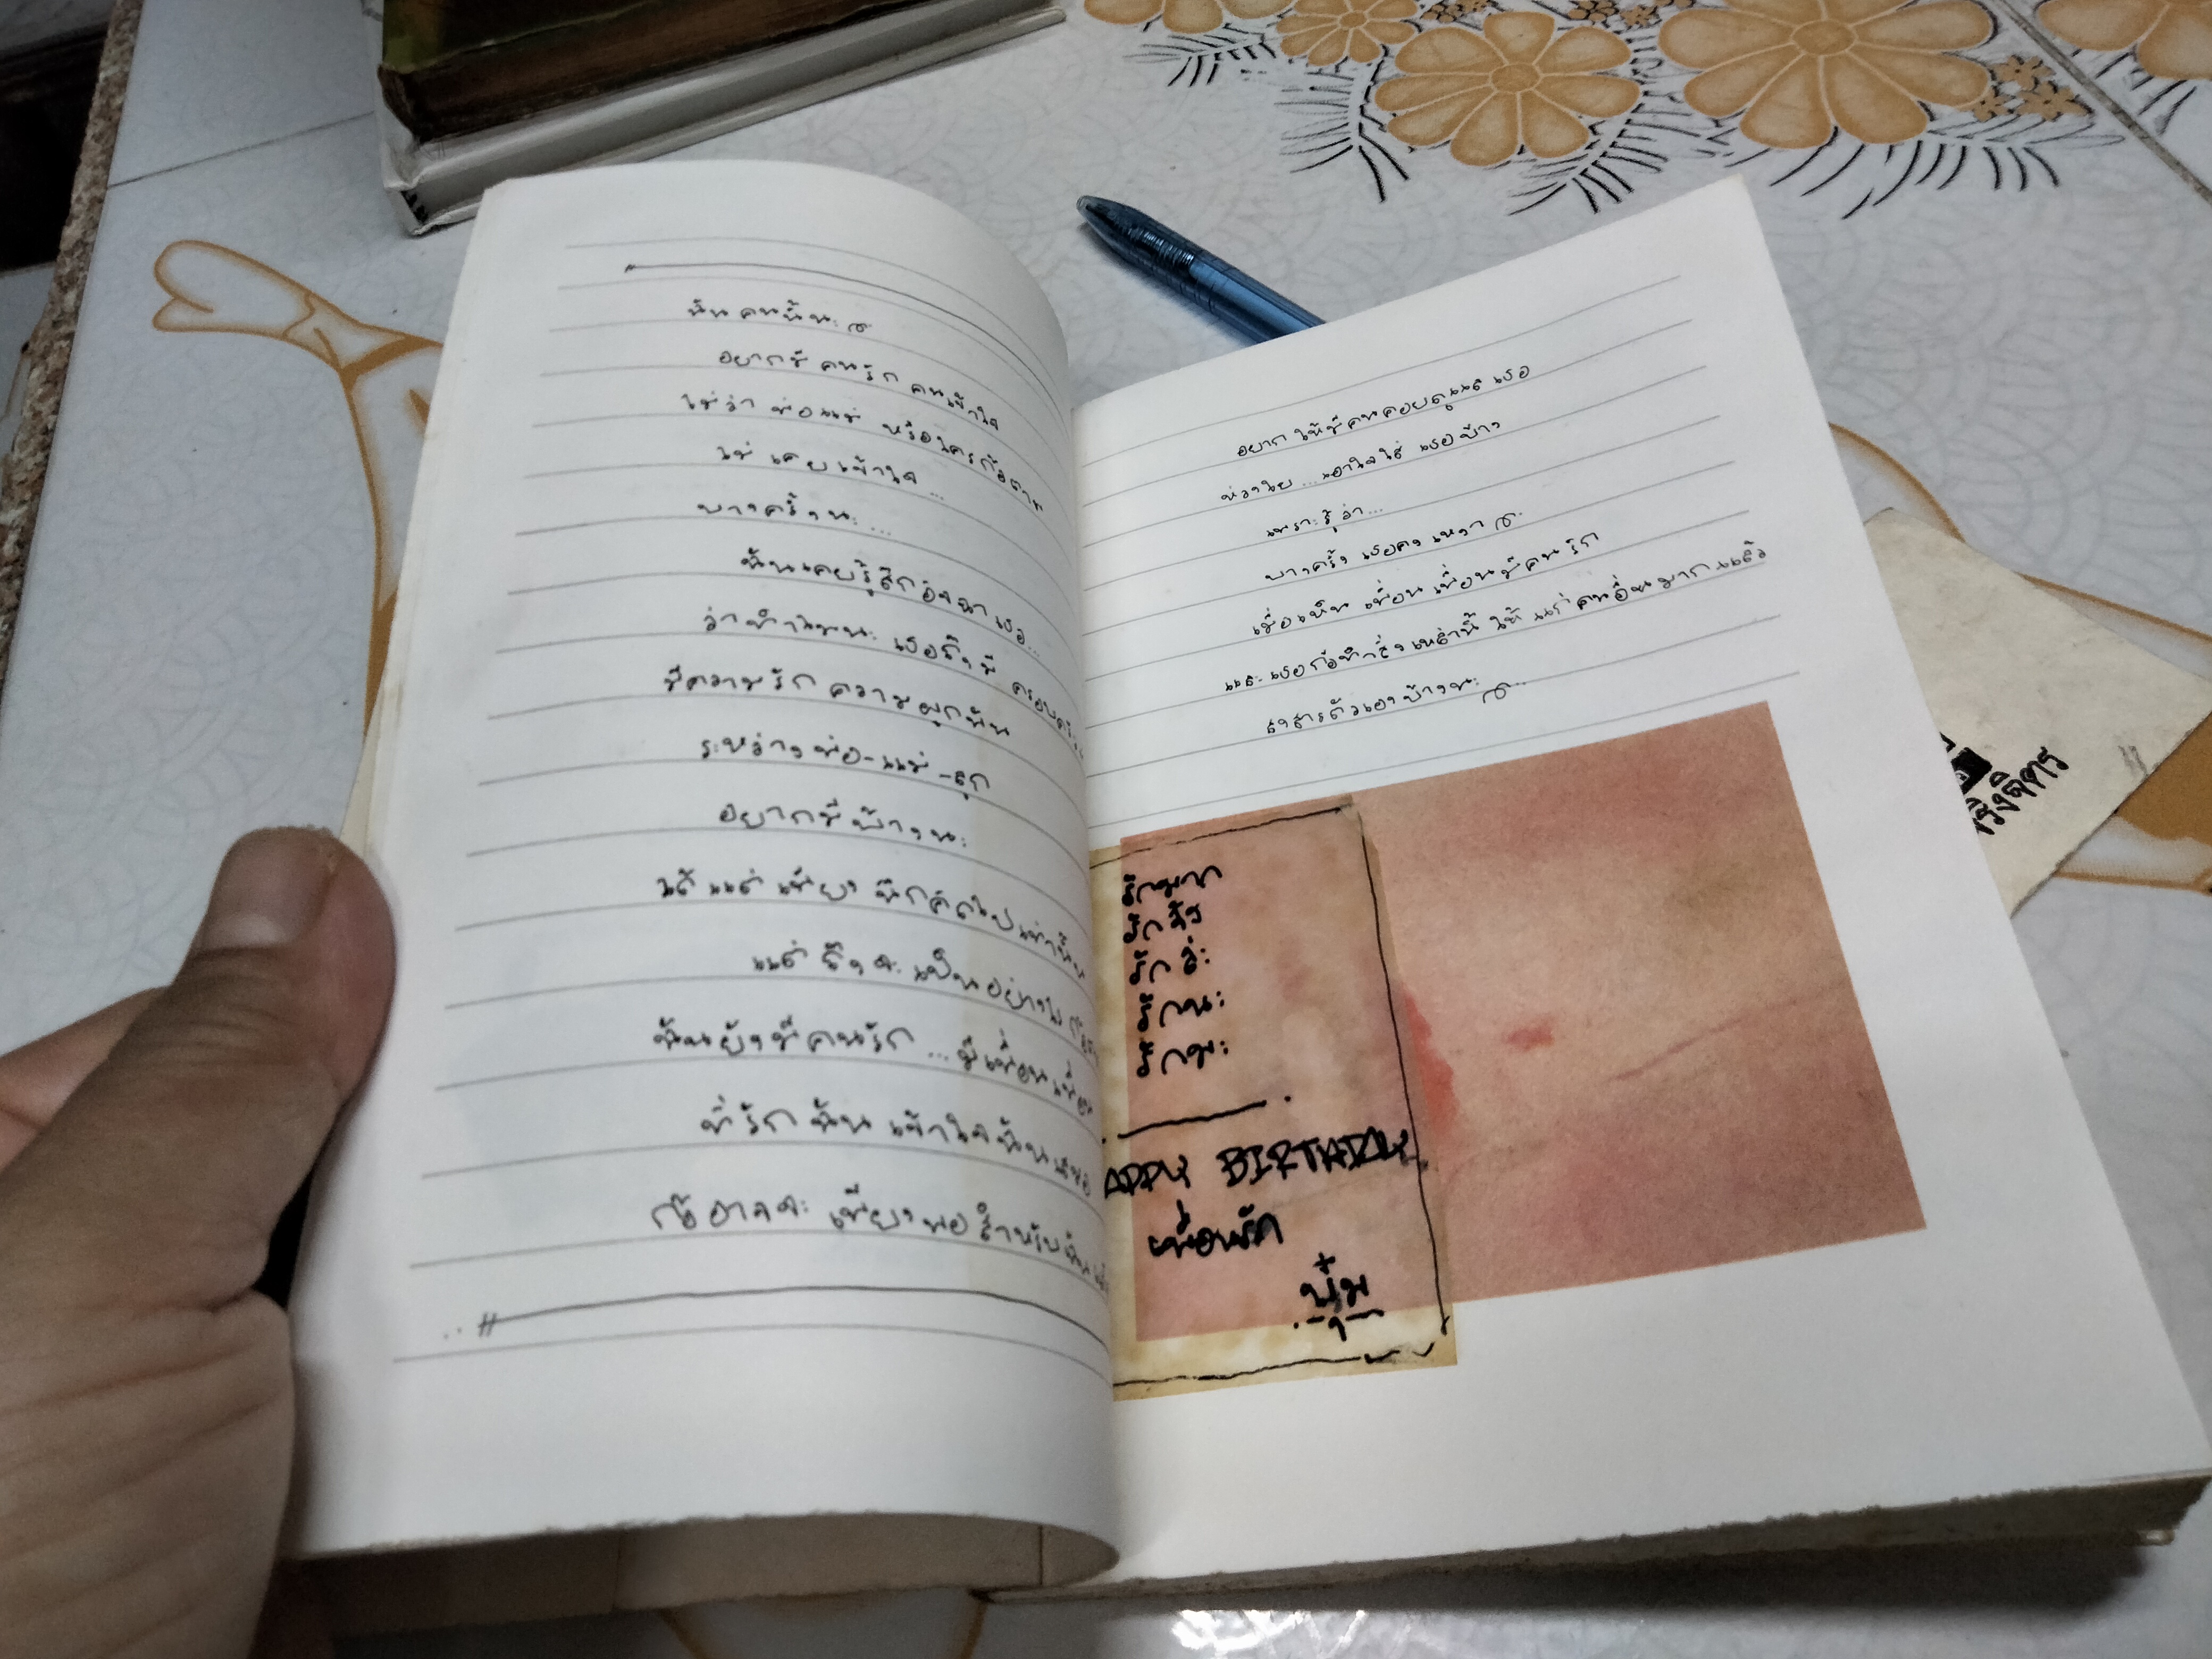 ฉันคนนี้นะ
อยากมี คนรัก คนเข้าใจ
ไม่ว่า พ่อแม่ หรือใครก้อตาม
ไม่ เคย เข้าใจ ...
บางครั้งนะ ...
ฉันเคยรู้สึกอิจฉาเธอ...
ว่าทำไมนะ เธอถึงมี
มีความรัก ความผูกพัน
ระหว่าง พ่อ-แม่-ลูก
อยากมีบ้างนะ
ได้ แต่ เพียง นึกคิดไปเท่านั้น
แต่ ถึงจะ เป็นอย่างไร
ฉันยังมีคนรัก ... มีเพื่อน
ที่รัก ฉัน เข้าใจฉันเสมอ
ก้ออาจจะ เพียงพอสำหรับฉัน
อยาก ให้มีคนคอยดูแล เธอ
ห่วงใย ... เอาใจใส่ เธอบ้าง
เพราะรู้ว่า...
บางครั้ง เธอคงเหงา
เมื่อเห็น เพื่อน เพื่อนมีคนรัก
และ เธอก้อทำสิ่งเหล่านี้ ให้ แก่ คนอื่นมาก แล้ว
สงสารตัวเองบ้างนะ
รักมาก
รักจัง
รักนะ
APPY BIRTHDAY
เพื่อนรัก
ปุ๋ม
จริงจิตร